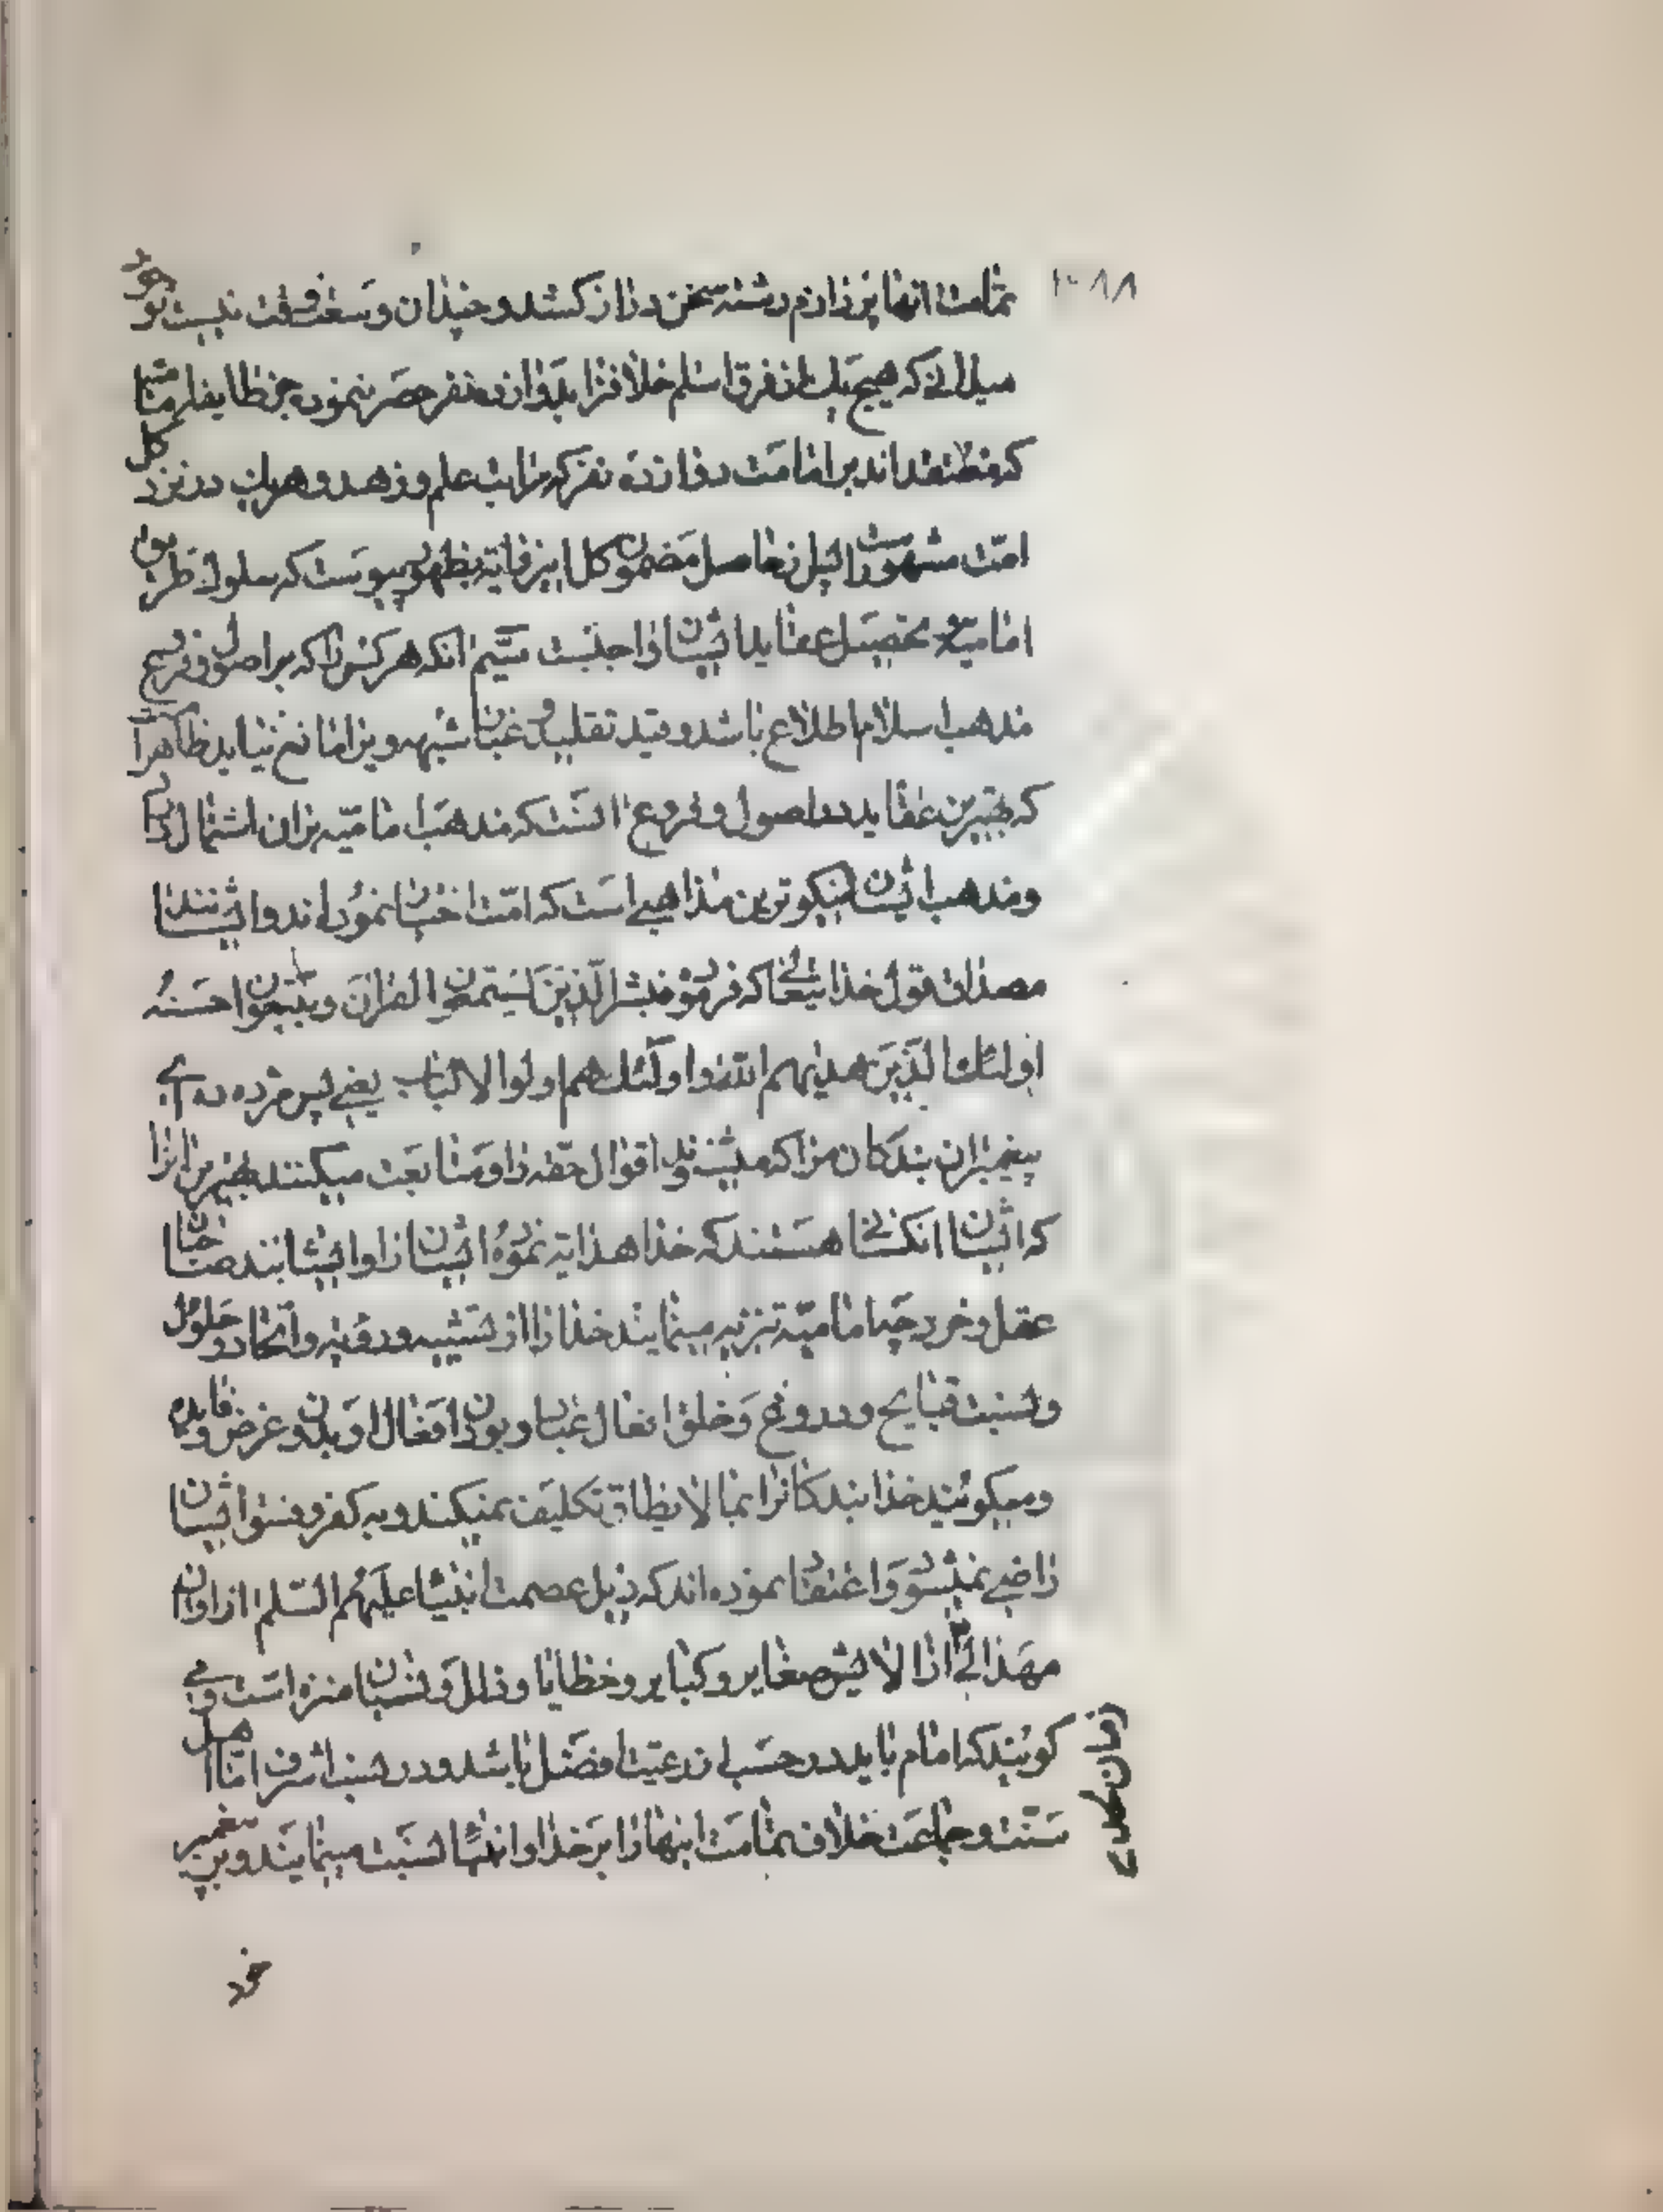 ۱۰۸۸
تمامت انها پردازم رشته سخن دراز کشد و چندان وسعت وقت نیست تو خود
میدانے که هیچ یك از فرق اسلام خلافترا بدوازده نفر حصر ننموده جز طایفه امامیه
که معتقداند بر امامت دوازده نفر که مراتب علم و زهد و هر یك در نزد کل
امت مشهور است پس از حاصل مضمون کل این روایة بظهور پیوست که سلوك طریق
امامیه و تحصیل عقاید ایشان واجبست سیّم انکه هر کس را که بر اصول و فروع
مذهب اسلام اطلاع باشد و قید تقلید و غبار شبهه ویرا مانع نیاید ظاهرا
که بهترین عقاید در اصول و فروع انست که مذهب امامیّه بران اشتمال دارد
و مذهب ایشان نیکوترین مذاهبے است که امّت اختیار نموده اند و ایشانند
مصداق قول خدایتعالے که فرموده فبشر الَّذین یَستمعون القرانَ و یتّبعون احسَنهُ
اولئك الَّذینَ هدیٰهم الله و اولٓئك هم اولوا الالباب یعنے پس مژده ده اے
پیغمبر ان بندکان مرا که میشنوند اقوال حقّه را و متابعت میکنند بهترین انرا
که ایشان انکسانے هستند که خدا هدایة نموده ایشان را و ایشانند صاحبان
عقل و خرد چه امامیّه تنزیه مینمایند خدا را از تشبیه و رؤیة و اتّحاد و حلول
و نسبت قبایح و دروغ و خلق افعال عباد و بودن افعال او بدون غرض و فایده
و میکویند خدا بندکانرا بما لا یطاق تکلیف نمیکند و به کفر و فسق ایشان
راضے نمیشود و اعتقاد نموده اند که ذیل عصمت انبیا علیهم السّلام از اوان
مهد الے از الایش صغایر و کبایر و خطایا و ذلل و نسیان منزه است و مے
کویند که امام باید در حسب از رعیّت افضل باشد و در نسب اشرف امّا اهل
سنّت و جماعت خلاف تمامت اینها را بر خدا و انبیا نسبت مینمایند و بر پیغمبر
خود